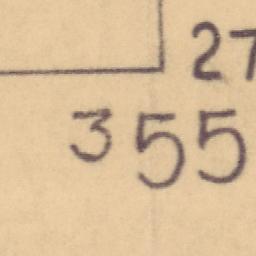 27
355